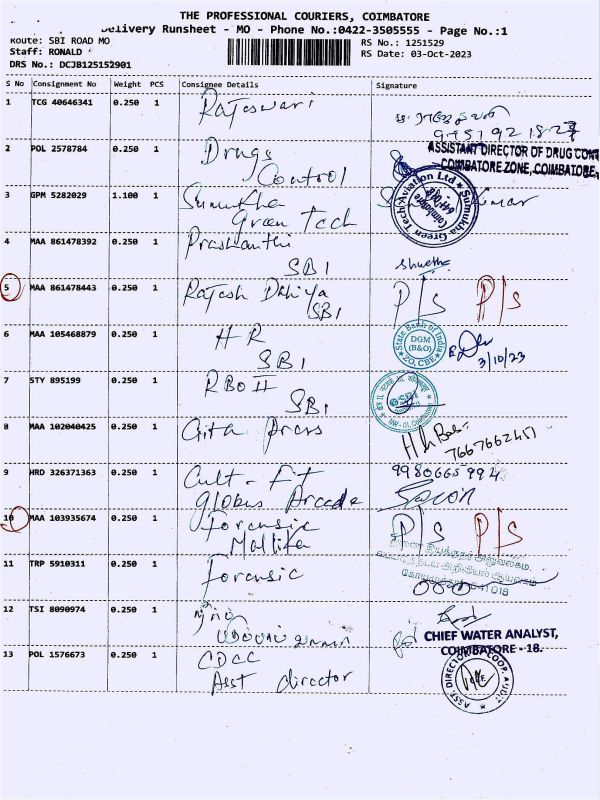 THE PROFESSIONAL COURIERS, COIMBATORE
Delivery Runsheet - MO - Phone No.:0422-3505555 - Page No.:1
Route: SBI ROAD MO
RS No.: 1251529
Staff: RONALD
RS Date: 03-Oct-2023
DRS No.: DCJB125152901
S No Consignment No Weight PCS Consignee Details Signature
1 TCG 40646341 0.250 1 Rajeswari
2 POL 2578784 0.250 1 Drugs
Control
ASSISTANT DIRECTOR OF DRUG CONT
COIMBATORE ZONE, COIMBATORE
3 GPM 5282029 1.100 1 Sumukha
Green Tech
Sumukha Green Tech Aviation Ltd
Coimbatore
4 MAA 861478392 0.250 1 Prashanthi
SBI
Shwetha
5 MAA 861478443 0.250 1 Rajesh Dahiya
SBI
P/S P/S
6 MAA 105468879 0.250 1 HR
SBI
State Bank of India
DGM
(B&O)
ZO, CBE
3/10/23
7 STY 895199 0.250 1 RBO II
SBI
SBI
8 MAA 102040425 0.250 1 Gita Press
7667662451
9 HRD 326371363 0.250 1 Cult-Fit
Globus Arcade
9980665994
10 MAA 103935674 0.250 1 Forensic
Mallika
P/S P/S
11 TRP 5910311 0.250 1 Forensic
641018
12 TSI 8090974 0.250 1
CHIEF WATER ANALYST,
COIMBATORE - 18.
13 POL 1576673 0.250 1 CDCC
Asst director
ASST. DIRECTOR COOP. AUDIT